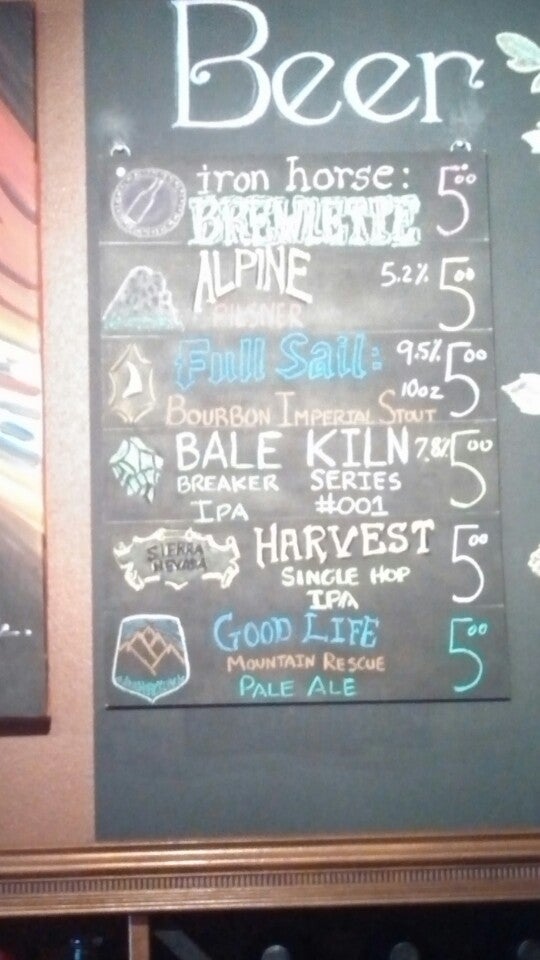 Beer
iron horse: 5.00
BREWLETTE
ALPINE 5.2% 5.00
PILSNER
Full Sail: 9.5% 5.00
10oz
BOURBON IMPERIAL STOUT
BALE KILN 7.8% 5.00
BREAKER SERIES
IPA #001
SIERRA NEVADA HARVEST 5.00
SINGLE HOP
IPA
GOOD LIFE 5.00
MOUNTAIN RESCUE
PALE ALE